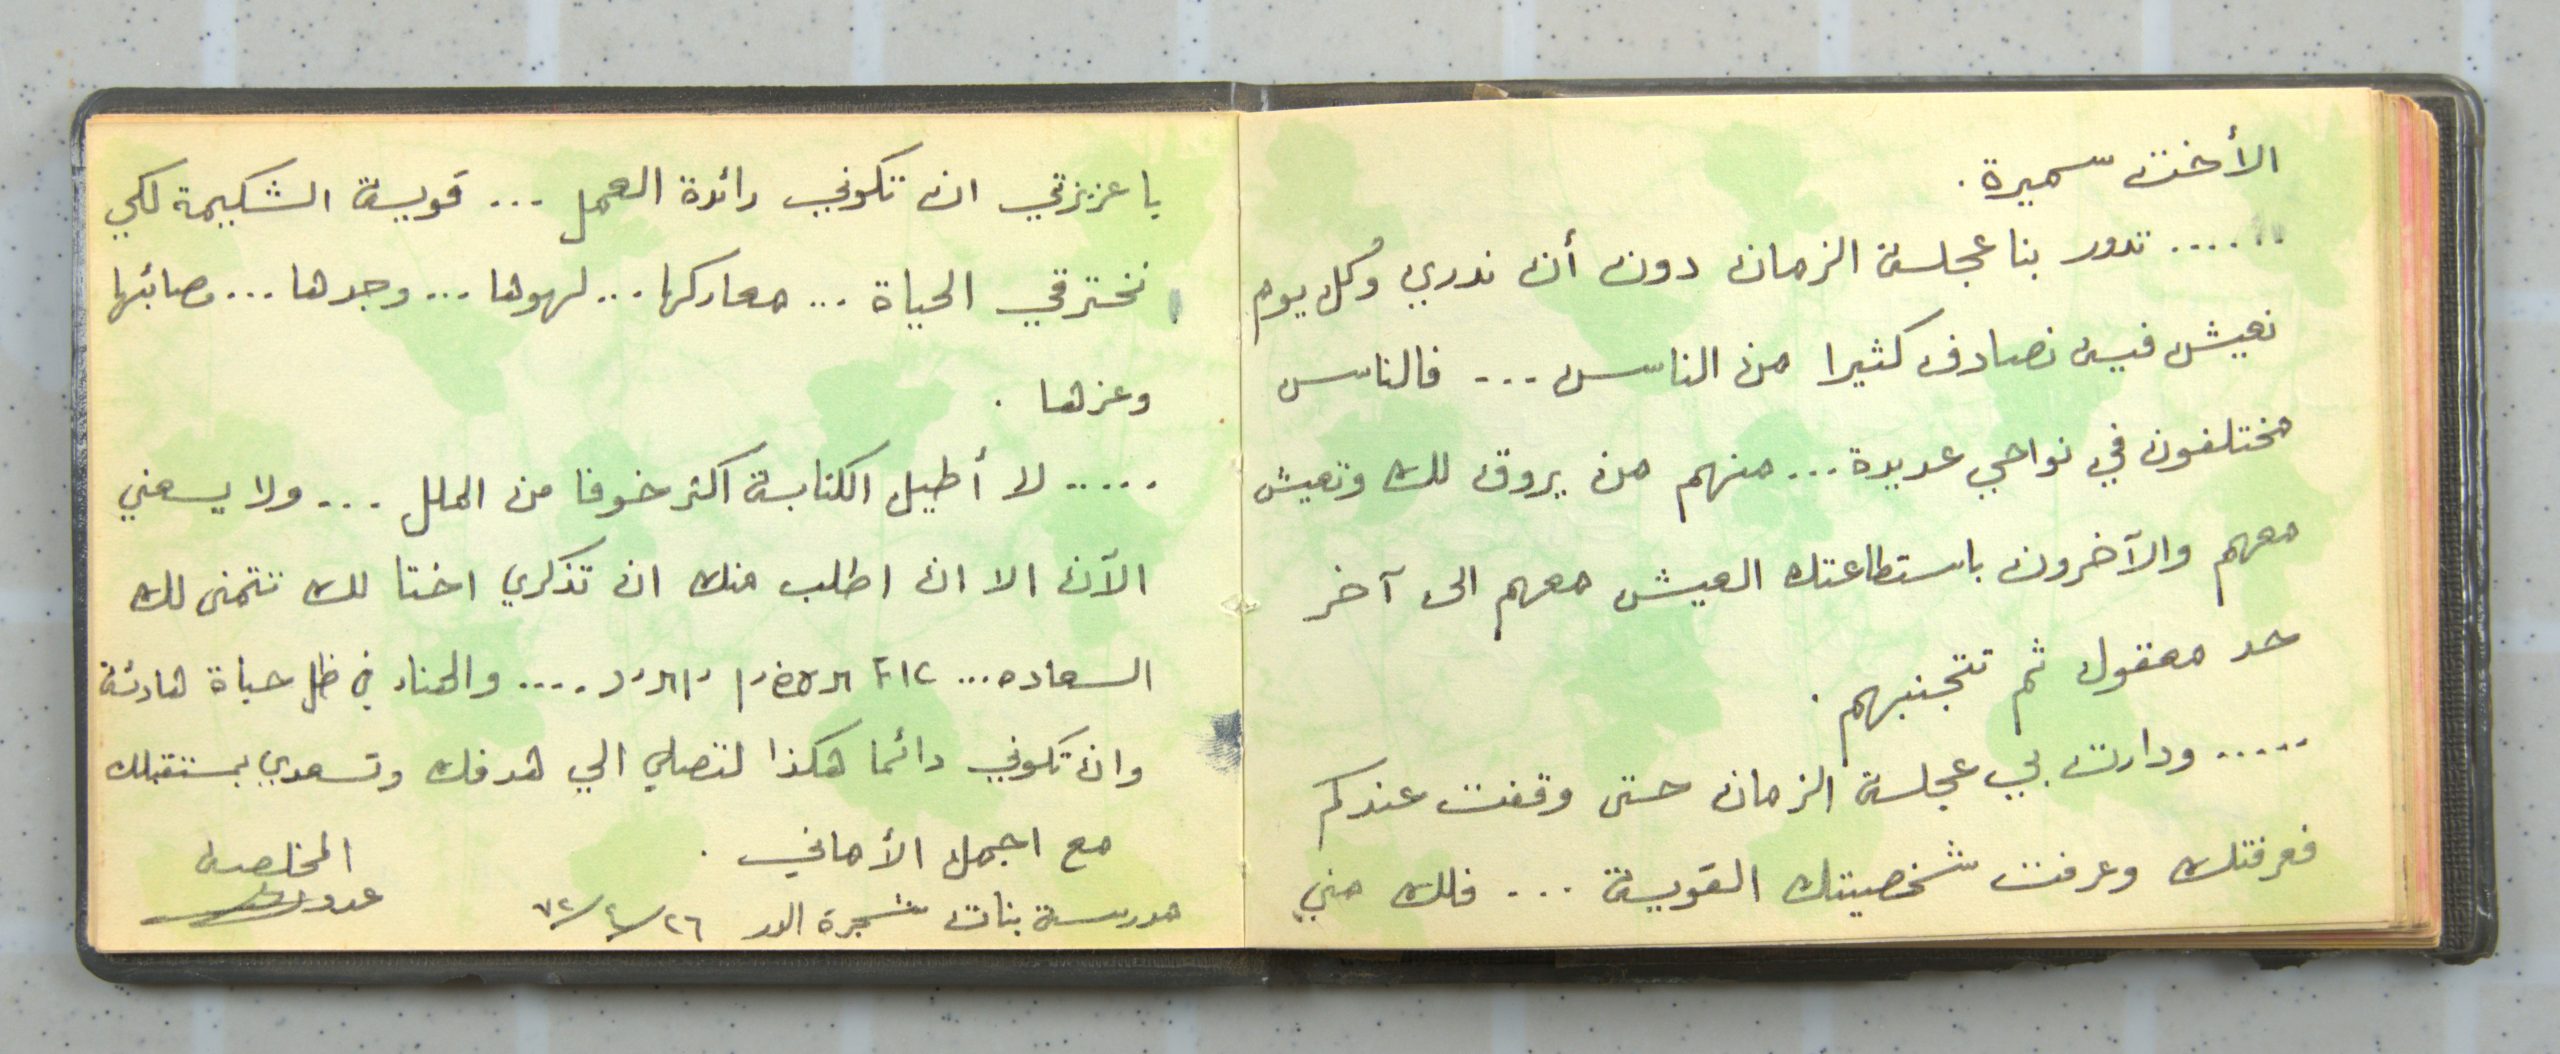 الأخت سميرة.
..... تدور بنا عجلة الزمان دون أن ندري وكل يوم
نعيش فيه نصادف كثيرا من الناس ... فالناس
مختلفون في نواحي عديدة... منهم من يروق لك وتعيش
معهم والآخرون باستطاعتك العيش معهم الى آخر
حد معقول ثم تتجنبهم.
..... ودارت بي عجلة الزمان حتى وقفت عندكم
فعرفتك وعرفت شخصيتك القوية ... فلك مني
يا عزيزتي ان تكوني رائدة العمل ... قوية الشكيمة لكي
تخترقي الحياة ... معاركها... لهوها ... وجدها ... مصائبها
وعزها.
..... لا أطيل الكتابة اكثر خوفا من الملل ... ولا يسعني
الآن الا ان اطلب منك ان تذكري اختا لك تتمنى لك
السعاده... .... والهناء في ظل حياة هادئة
وان تكوني دائما هكذا لتصلي الي هدفك وتسعدي بمستقبلك
مع اجمل الأماني.
المخلصة
مدرسة بنات شجرة الدر ٢٦/٤/٧٢